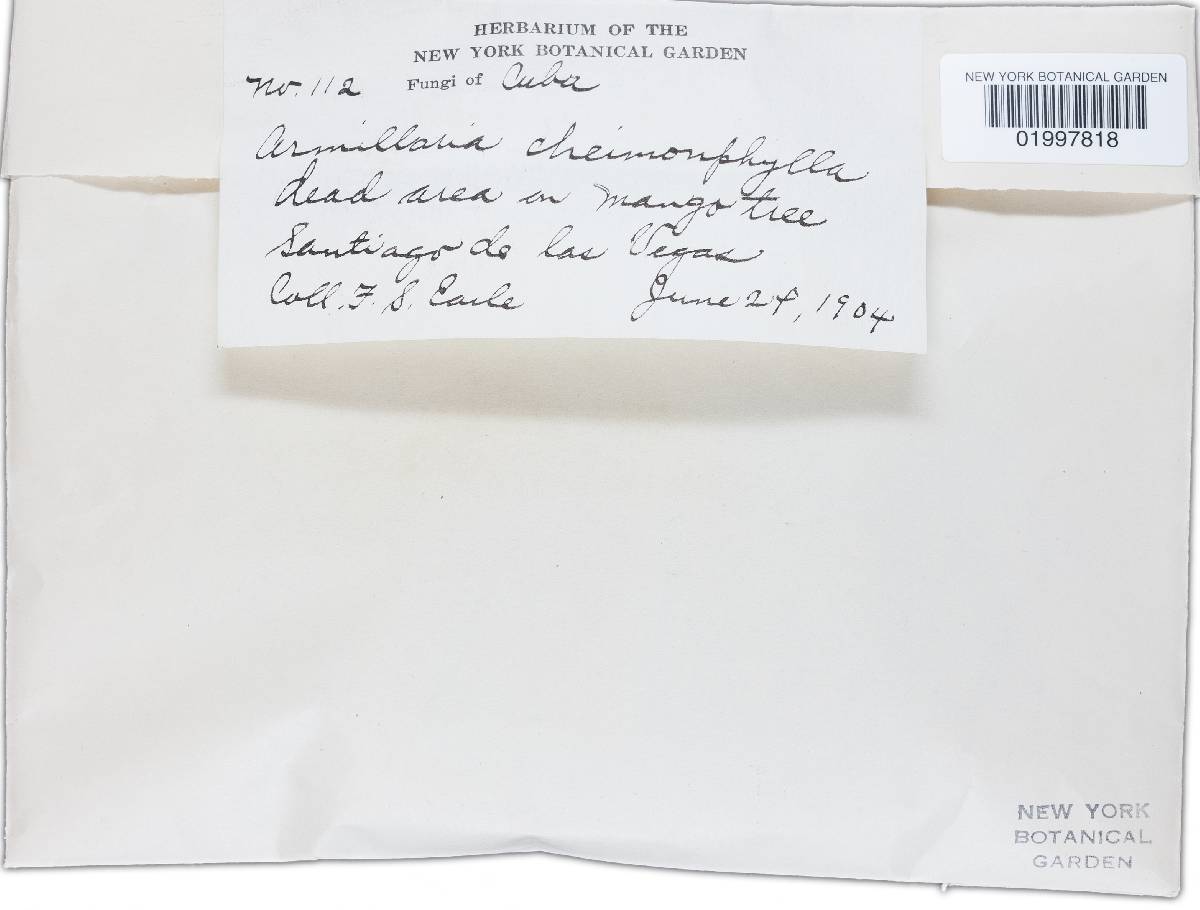 HERBARIUM OF THE
NEW YORK BOTANICAL GARDEN
No. 112 Fungi of Cuba
Armillaria cheimonphylla
dead area on mango tree
Santiago de las Vegas
Coll. F. S. Earle June 24, 1904
NEW YORK BOTANICAL GARDEN
01997818
NEW YORK
BOTANICAL
GARDEN